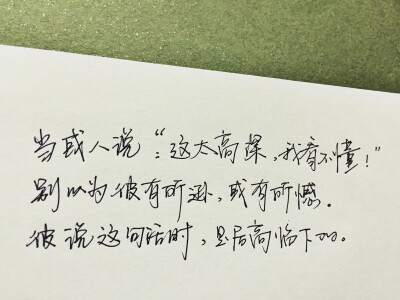 当或人说:“这太高深,我看不懂!”
别以为彼有所逊,或有所憾.
彼说这句话时,是居高临下的。